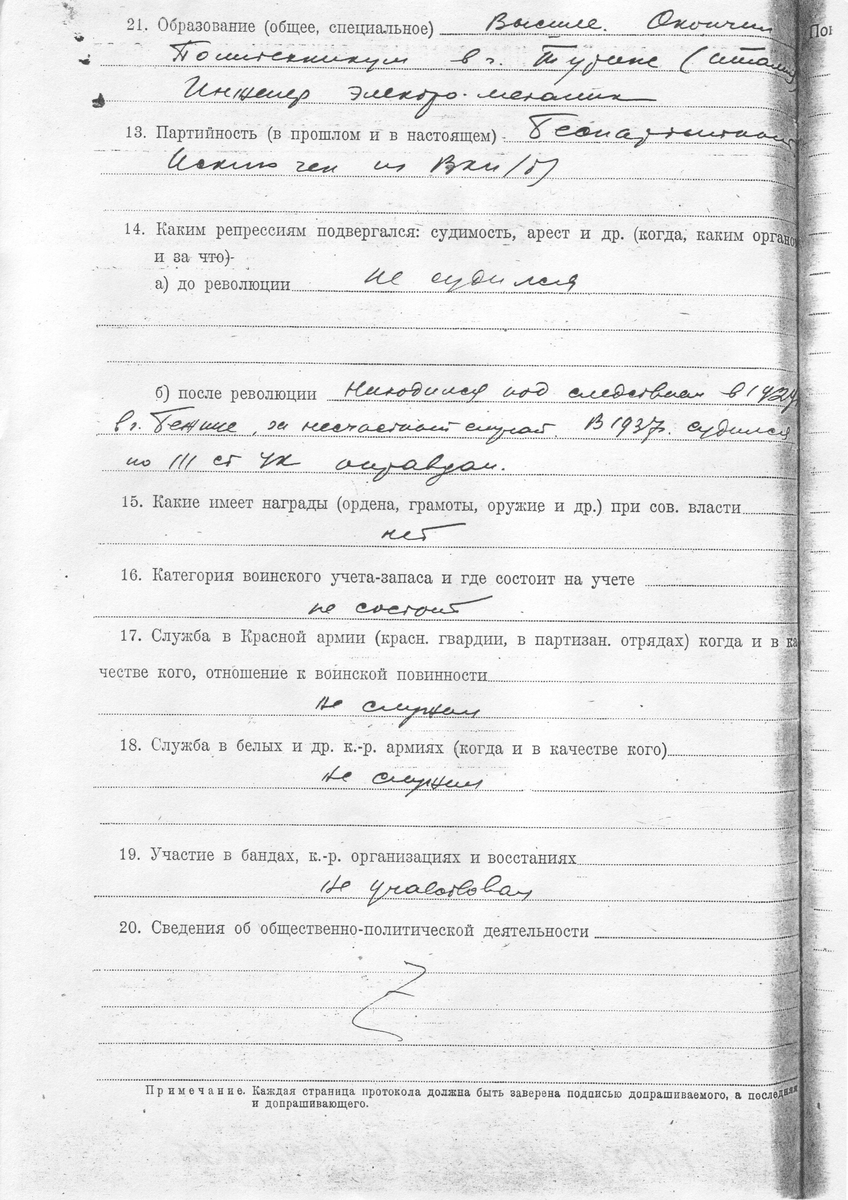 21. Образование (общее, специальное) Высшее. Окончил
Пов
Политехникум в г. Турине (Италия)
Инженер электро-механик
13. Партийность (в прошлом и в настоящем) Беспартийный
Исключен из ВКП(б)
14. Каким репрессиям подвергался: судимость, арест и др. (когда, каким органом
и за что)-
а) до революции не судился
б) после революции Находился под следствием в 192
в г. , за несчастный случай. В 1937г. судился
по III ст УК оправдан.
15. Какие имеет награды (ордена, грамоты, оружие и др.) при сов. власти
нет
16. Категория воинского учета-запаса и где состоит на учете
не состоит
17. Служба в Красной армии (красн. гвардии, в партизан. отрядах) когда и в ка
честве кого, отношение к воинской повинности
не служил
18. Служба в белых и др. к.-р. армиях (когда и в качестве кого)
не служил
19. Участие в бандах, к.-р. организациях и восстаниях
не участвовал
20. Сведения об общественно-политической деятельности
Примечание. Каждая страница протокола должна быть заверена подписью допрашиваемого, а последняя
и допрашивающего.